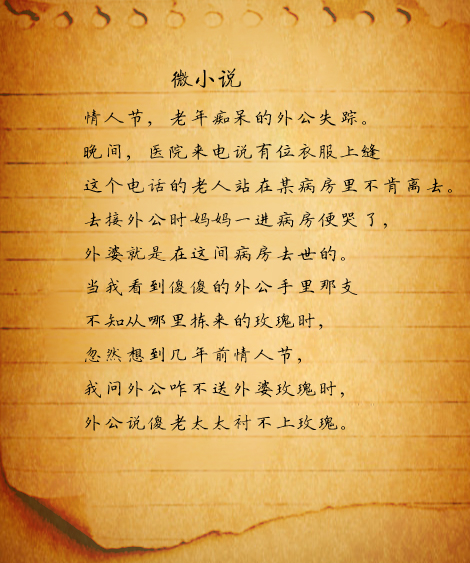 微小说
情人节，老年痴呆的外公失踪。
晚间，医院来电说有位衣服上缝
这个电话的老人站在某病房里不肯离去。
去接外公时妈妈一进病房便哭了，
外婆就是在这间病房去世的。
当我看到傻傻的外公手里那支
不知从哪里拣来的玫瑰时，
忽然想到几年前情人节，
我问外公咋不送外婆玫瑰时，
外公说傻老太太衬不上玫瑰。